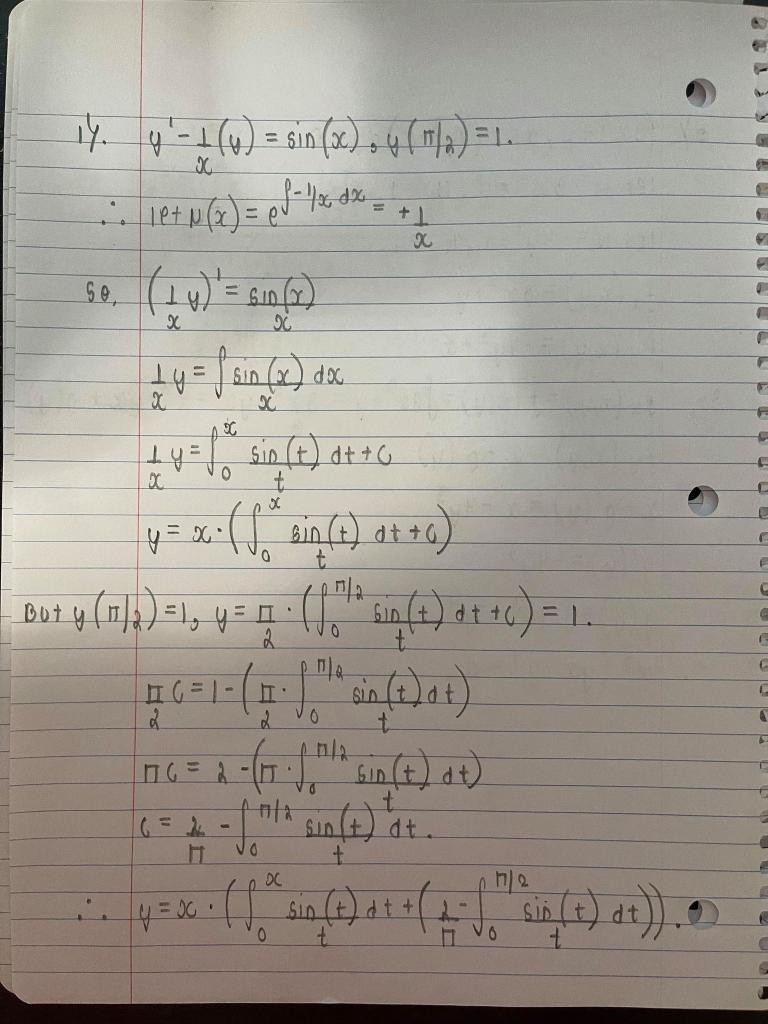 14. y' - 1/x (y) = sin(x), y(π/2) = 1.
∴ let μ(x) = e^∫-1/x dx = +1/x
so, (1/x y)' = sin(x)/x
1/x y = ∫ sin(x)/x dx
1/x y = ∫₀ˣ sin(t)/t dt + C
y = x · (∫₀ˣ sin(t)/t dt + C)
But y(π/2) = 1, y = π/2 · (∫₀^π/2 sin(t)/t dt + C) = 1.
π/2 C = 1 - (π/2 · ∫₀^π/2 sin(t)/t dt)
πC = 2 - (π · ∫₀^π/2 sin(t)/t dt)
C = 2/π - ∫₀^π/2 sin(t)/t dt.
∴ y = x · (∫₀ˣ sin(t)/t dt + (2/π - ∫₀^π/2 sin(t)/t dt)).